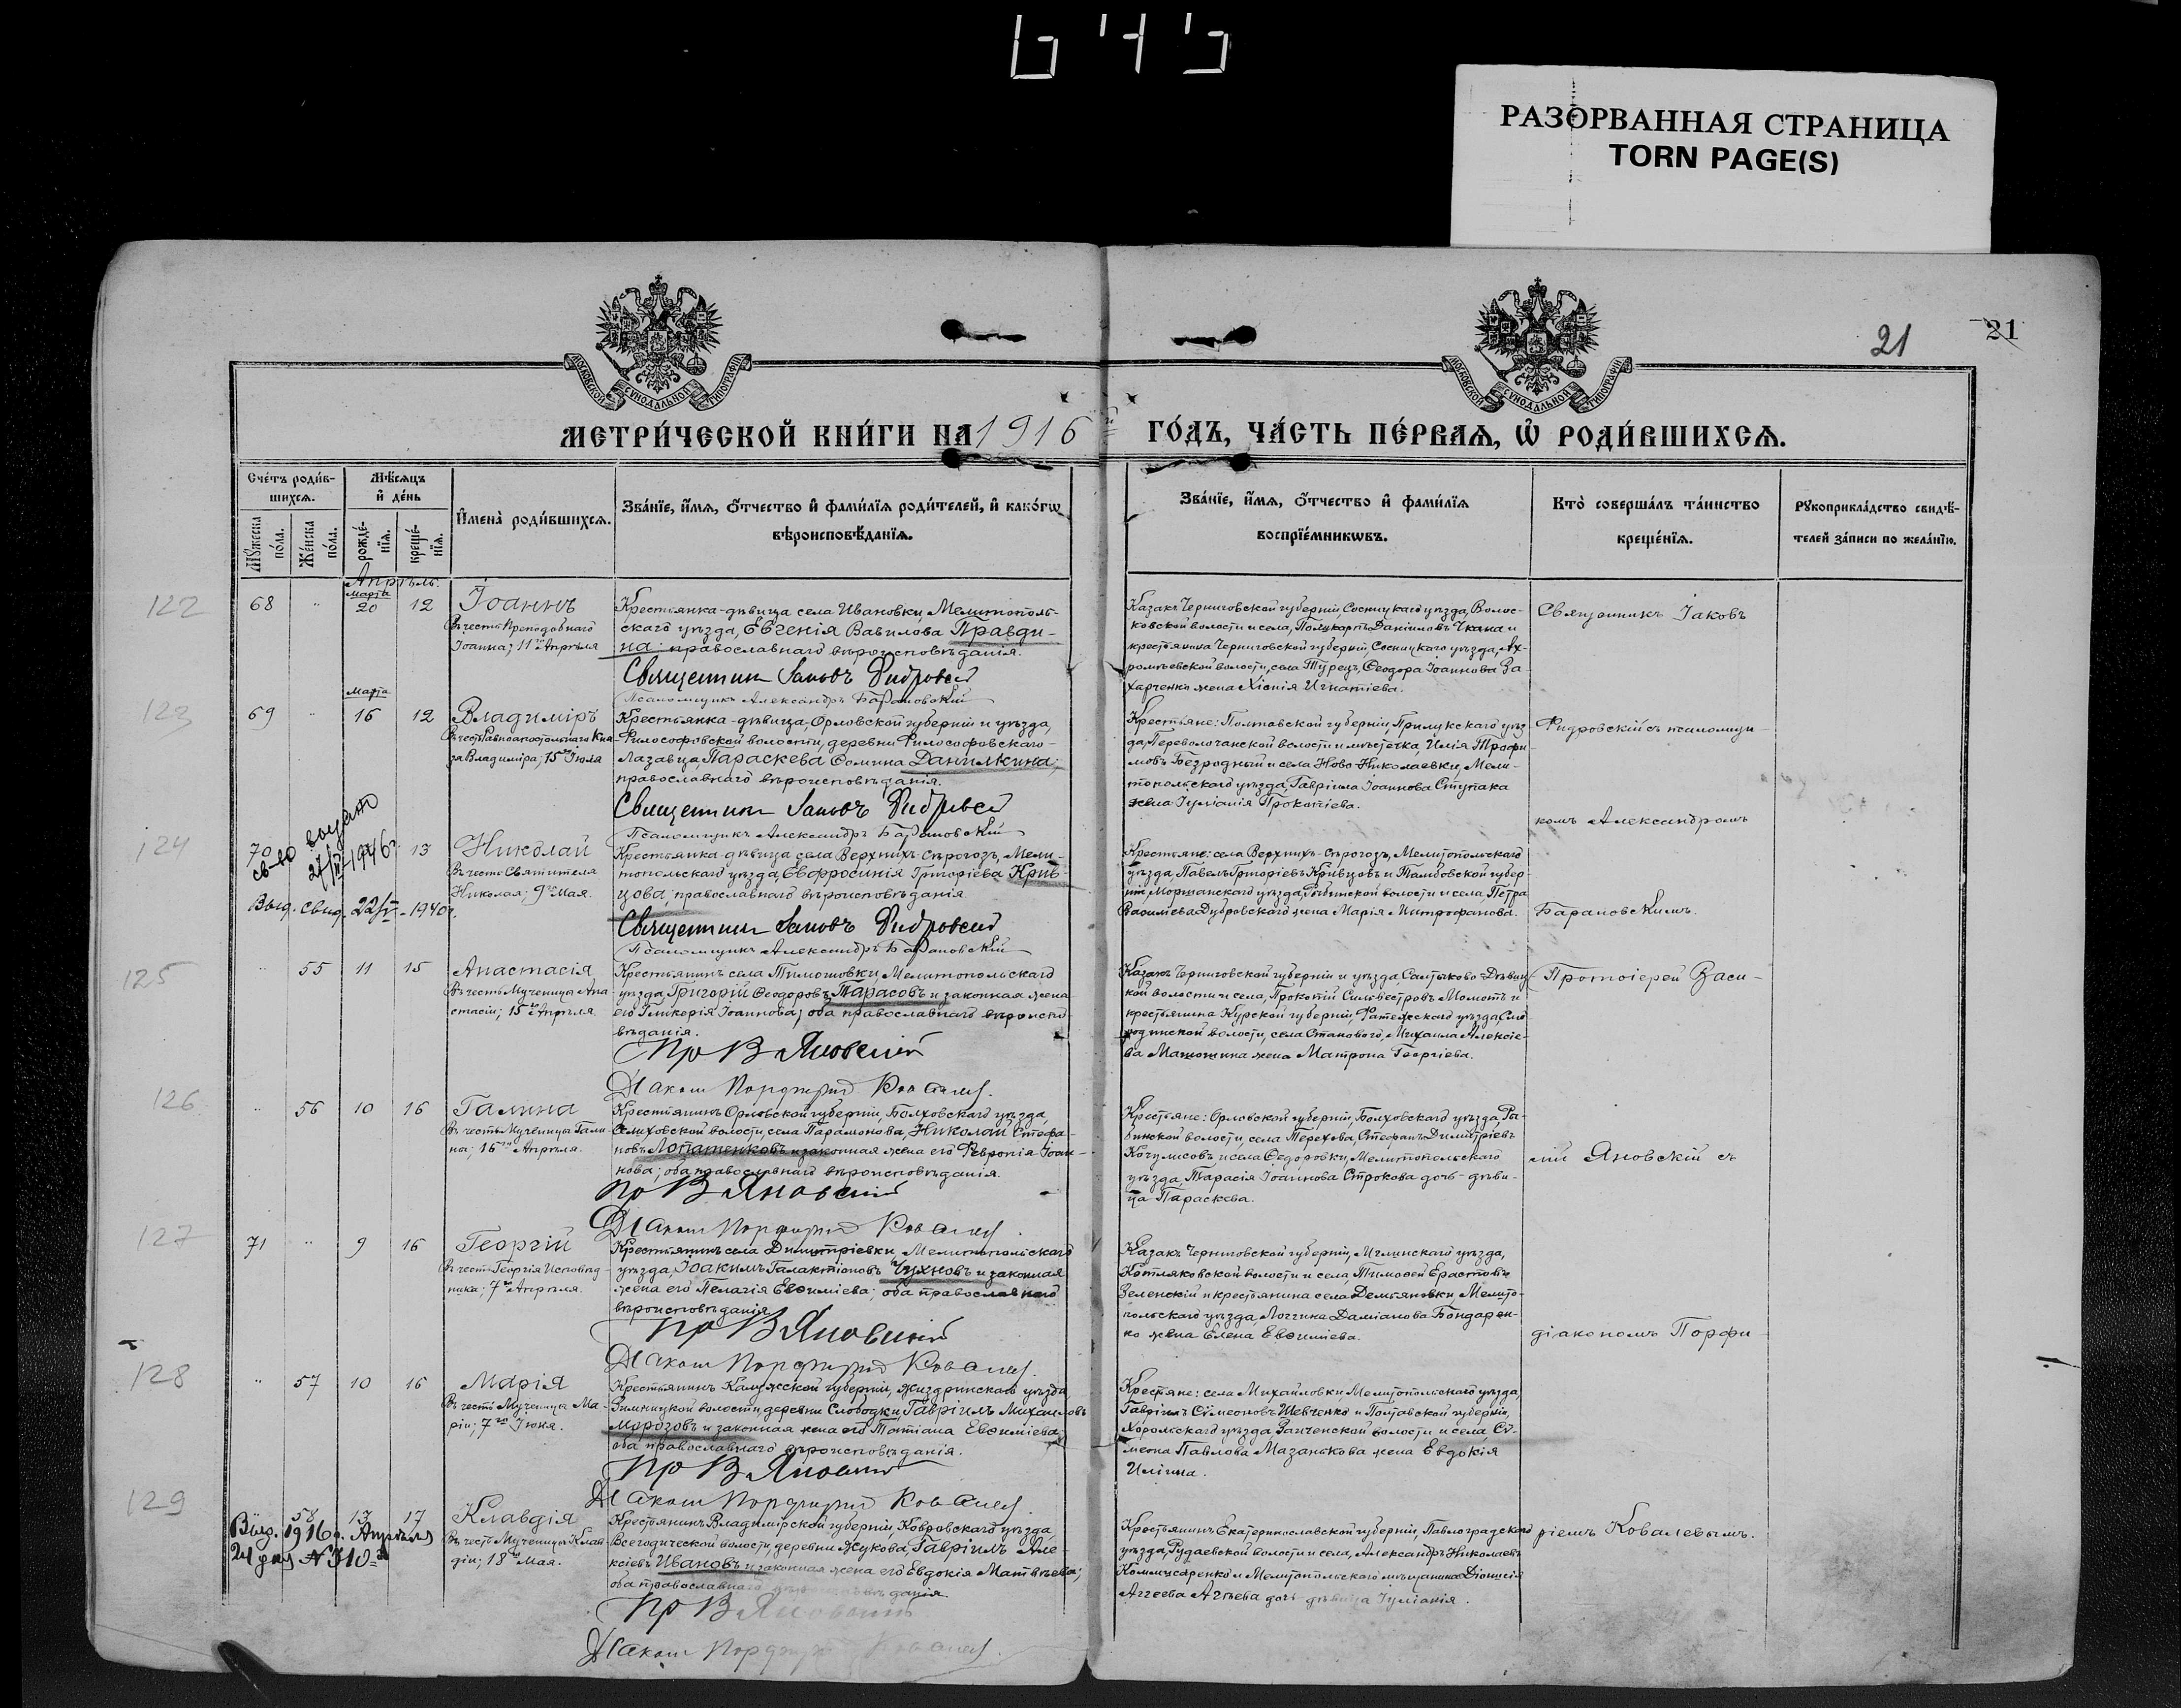 РАЗОРВАННАЯ СТРАНИЦА
TORN PAGE(S)
21
21
МОСКОВСКОЙ СУНОДАЛЬНОЙ ТИПОГРАФІИ
МОСКОВСКОЙ СУНОДАЛЬНОЙ ТИПОГРАФІИ
МЕТРИ́ЧЕСКОЙ КНИ́ГИ НА 1916 й ГО́ДЪ, ЧА́СТЬ ПЕ́РВАЯ, Ѡ҆ РОДИ́ВШИХСЯ.
Сче́тъ роди́в-
шихся.
Мѣ́сяцъ
и҆ де́нь
Мꙋ́жеска
по́ла.
Же́нска
по́ла.
рожде́-
нїя.
креще́-
нїя.
И҆мена̀ роди́вшихся.
Зва́нїе, и҆́мя, ѻ҆́тчество и҆ фами́лїя роди́телей, и҆ како́гѡ
вѣроисповѣ́данїя.
Зва́нїе, и҆́мя, ѻ҆́тчество и҆ фами́лїя
воспрїе́мникѡвъ.
Кто̀ соверша́лъ та́инство
креще́нїя.
Рꙋкоприкла́дство свидѣ́-
телей за́писи по жела́нїю.
Апрѣль.
122
68
"
Марта
20
12
Іоаннъ
Въ честь Преподобнаго
Іоанна; 11го Апрѣля
Крестьянка-дѣвица села Ивановки, Мелитополь-
скаго уѣзда, Евгенія Вавилова Правди-
на; православнаго вѣроисповѣданія.
Священник Іаковъ Фидровскій
Псаломщикъ Александръ Барановскій
Казакъ Черниговской губерніи Сосницкаго уѣзда, Волос-
ковской волости и села, Поликарпъ Даніиловъ Чкана и
крестьянина Черниговской губерніи, Сосницкаго уѣзда, Ах-
ромѣевской волости, села Турецъ, Ѳеодора Іоаннова За-
харченко жена Хіонія Игнатіева.
Священникъ Іаковъ
123
69
"
Марта
16
12
Владиміръ
Въ честь Равноапостольнаго Кня-
зя Владиміра; 15го Іюля
Крестьянка-дѣвица, Орловской губерніи и уѣзда,
Философовской волости, деревни Философовскаго-
Лазавца, Параскева Ѳомина Данилкина;
православнаго вѣроисповѣданія.
Священник Іаковъ Фидровскій
Псаломщикъ Александръ Барановскій
Крестьяне: Полтавской губерніи, Прилукскаго уѣз-
да, Переволочанской волости и мѣстечка, Илія Трофи-
мовъ Безродный и села Ново-Николаевки, Мели-
топольскаго уѣзда, Гавріила Іоаннова Ступака
жена Іуліанія Прокопіева.
Фидровскій съ псаломщи-
комъ Александромъ
124
70
13
св-во выдано
27/IV-1946г.
Выд. свид. 22/V-1940г.
Николай
Въ честь Святителя
Николая; 9го Мая.
Крестьянка-дѣвица села Верхнихъ-Сѣрогозъ, Мели-
топольскаго уѣзда, Евфросинія Григоріева Крив-
цова; православнаго вѣроисповѣданія
Священник Іаковъ Фидровскій
Псаломщикъ Александръ Барановскій
Крестьяне: села Верхнихъ-Сѣрогозъ, Мелитопольскаго
уѣзда, Павелъ Григоріевъ Кривцовъ и Тамбовской губер-
ніи, Моршанскаго уѣзда, волости и села, Петра
Василіева Дубровскаго жена Марія Митрофанова.
Барановскимъ.
125
"
55
11
15
Анастасія
Въ честь Мученицы Ана-
стасіи; 15го Апрѣля
Крестьянинъ села Тимошовки, Мелитопольскаго
уѣзда, Григорій Ѳеодоровъ Тарасовъ и законная жена
его Гликерія Іоаннова; оба православнаго вѣроиспо-
вѣданія.
Пр В Яновскій
Діаконъ Порфирій Ковалев.
Казакъ Черниговской губерніи и уѣзда, Салтыково-Дѣвиц-
кой волости и села, Прокопій Сильвестровъ Моло­тъ и
крестьянина Курской губерніи, Фатежскаго уѣзда,
волости, села Становаго, Михаила Алексіе-
ва жена Матрона Георгіева.
Протоіерей Васи-
126
"
56
10
16
Галина
Въ честь Мученицы Гали-
ны; 16го Апрѣля.
Крестьянинъ Орловской губерніи, Болховскаго уѣзда,
волости, села Парамонова, Николай Стефа-
новъ Лопатенковъ и законная жена его Февронія Іоан-
нова; оба православнаго вѣроисповѣданія.
Пр В Яновскій
Діаконъ Порфирій Ковалев.
Крестьяне: Орловской губерніи, Болховскаго уѣзда, Ря-
бинской волости, села Терехова, Стефанъ Димитріевъ
и села Ѳедоровки, Мелитопольскаго
уѣзда, Тарасія Іоаннова Строкова дочь-дѣви-
ца Параскева.
лій Яновскій съ
127
71
"
9
16
Георгій
Въ честь Георгія Исповѣд-
ника; 7го Апрѣля.
Крестьянинъ села Димитріевки, Мелитопольскаго
уѣзда, Іоакимъ Галактіоновъ Чухновъ и законная
жена его Пелагія Евѳиміева; оба православнаго
вѣроисповѣданія
Пр В Яновскій
Діаконъ Порфирій Ковалев.
Казакъ Черниговской губерніи, Мглинскаго уѣзда,
Котляковской волости и села, Тимоѳей Ерастовъ
Зеленскій и крестьянина села Демьяновки Мелито-
польскаго уѣзда, Логгина Даміанова Бондарен-
ко жена Елена Евѳиміева.
діакономъ Порфи-
128
"
57
10
16
Марія
Въ честь Мученицы Ма-
ріи; 7го Іюня.
Крестьянинъ Калужской губерніи, Жиздринскаго уѣзда
Зимницкой волости, деревни Слободки, Гавріилъ Михаиловъ
Морозовъ и законная жена его Татіана Евѳиміева;
оба православнаго вѣроисповѣданія.
Пр В Яновскій
Діаконъ Порфирій Ковалев.
Крестьяне: села Михайловки Мелитопольскаго уѣзда,
Гавріилъ Сѵмеоновъ Шевченко и Полтавской губерніи,
Хорольскаго уѣзда, волости и села, Сѵ-
меона Павлова Мазанькова жена Евдокія
Иліина.
129
58
13
17
Выд. 1916г. Апрѣля
21 дня № 310
Клавдія
Въ честь Мученицы Клав-
діи; 18го Мая.
Крестьянинъ Владимірской губерніи, Ковровскаго уѣзда,
Всегодической волости, деревни Жукова, Гавріилъ Але-
ксіевъ Ивановъ и законная жена его Евдокія Матвѣева;
оба православнаго вѣроисповѣданія.
Пр В Яновскій
Діаконъ Порфирій Ковалев.
Крестьянинъ Екатеринославской губерніи, Павлоградскаго
уѣзда, Рудаевской волости и села, Александръ Николаевъ
Коммисаренко и Мелитопольскаго мѣщанина Діонисія
Аггеева Агѣева дочь дѣвица Іуліанія.
ріемъ Ковалевымъ.